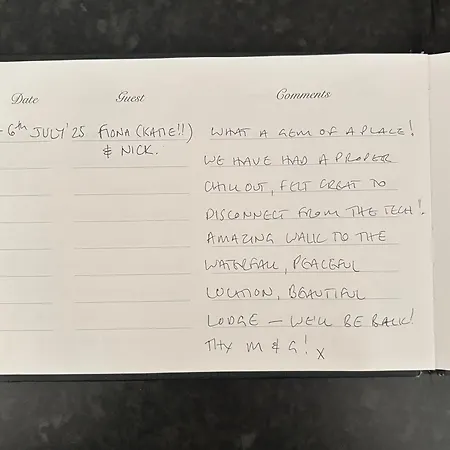 Date Guest Comments
- 6th JULY '25 FIONA (KATIE!!) WHAT A GEM OF A PLACE!
& NICK. WE HAVE HAD A PROPER
CHILL OUT, FELT GREAT TO
DISCONNECT FROM THE TECH!
AMAZING WALK TO THE
WATERFALL, PEACEFUL
LOCATION, BEAUTIFUL
LODGE — WE'LL BE BACK!
THX M & G! X